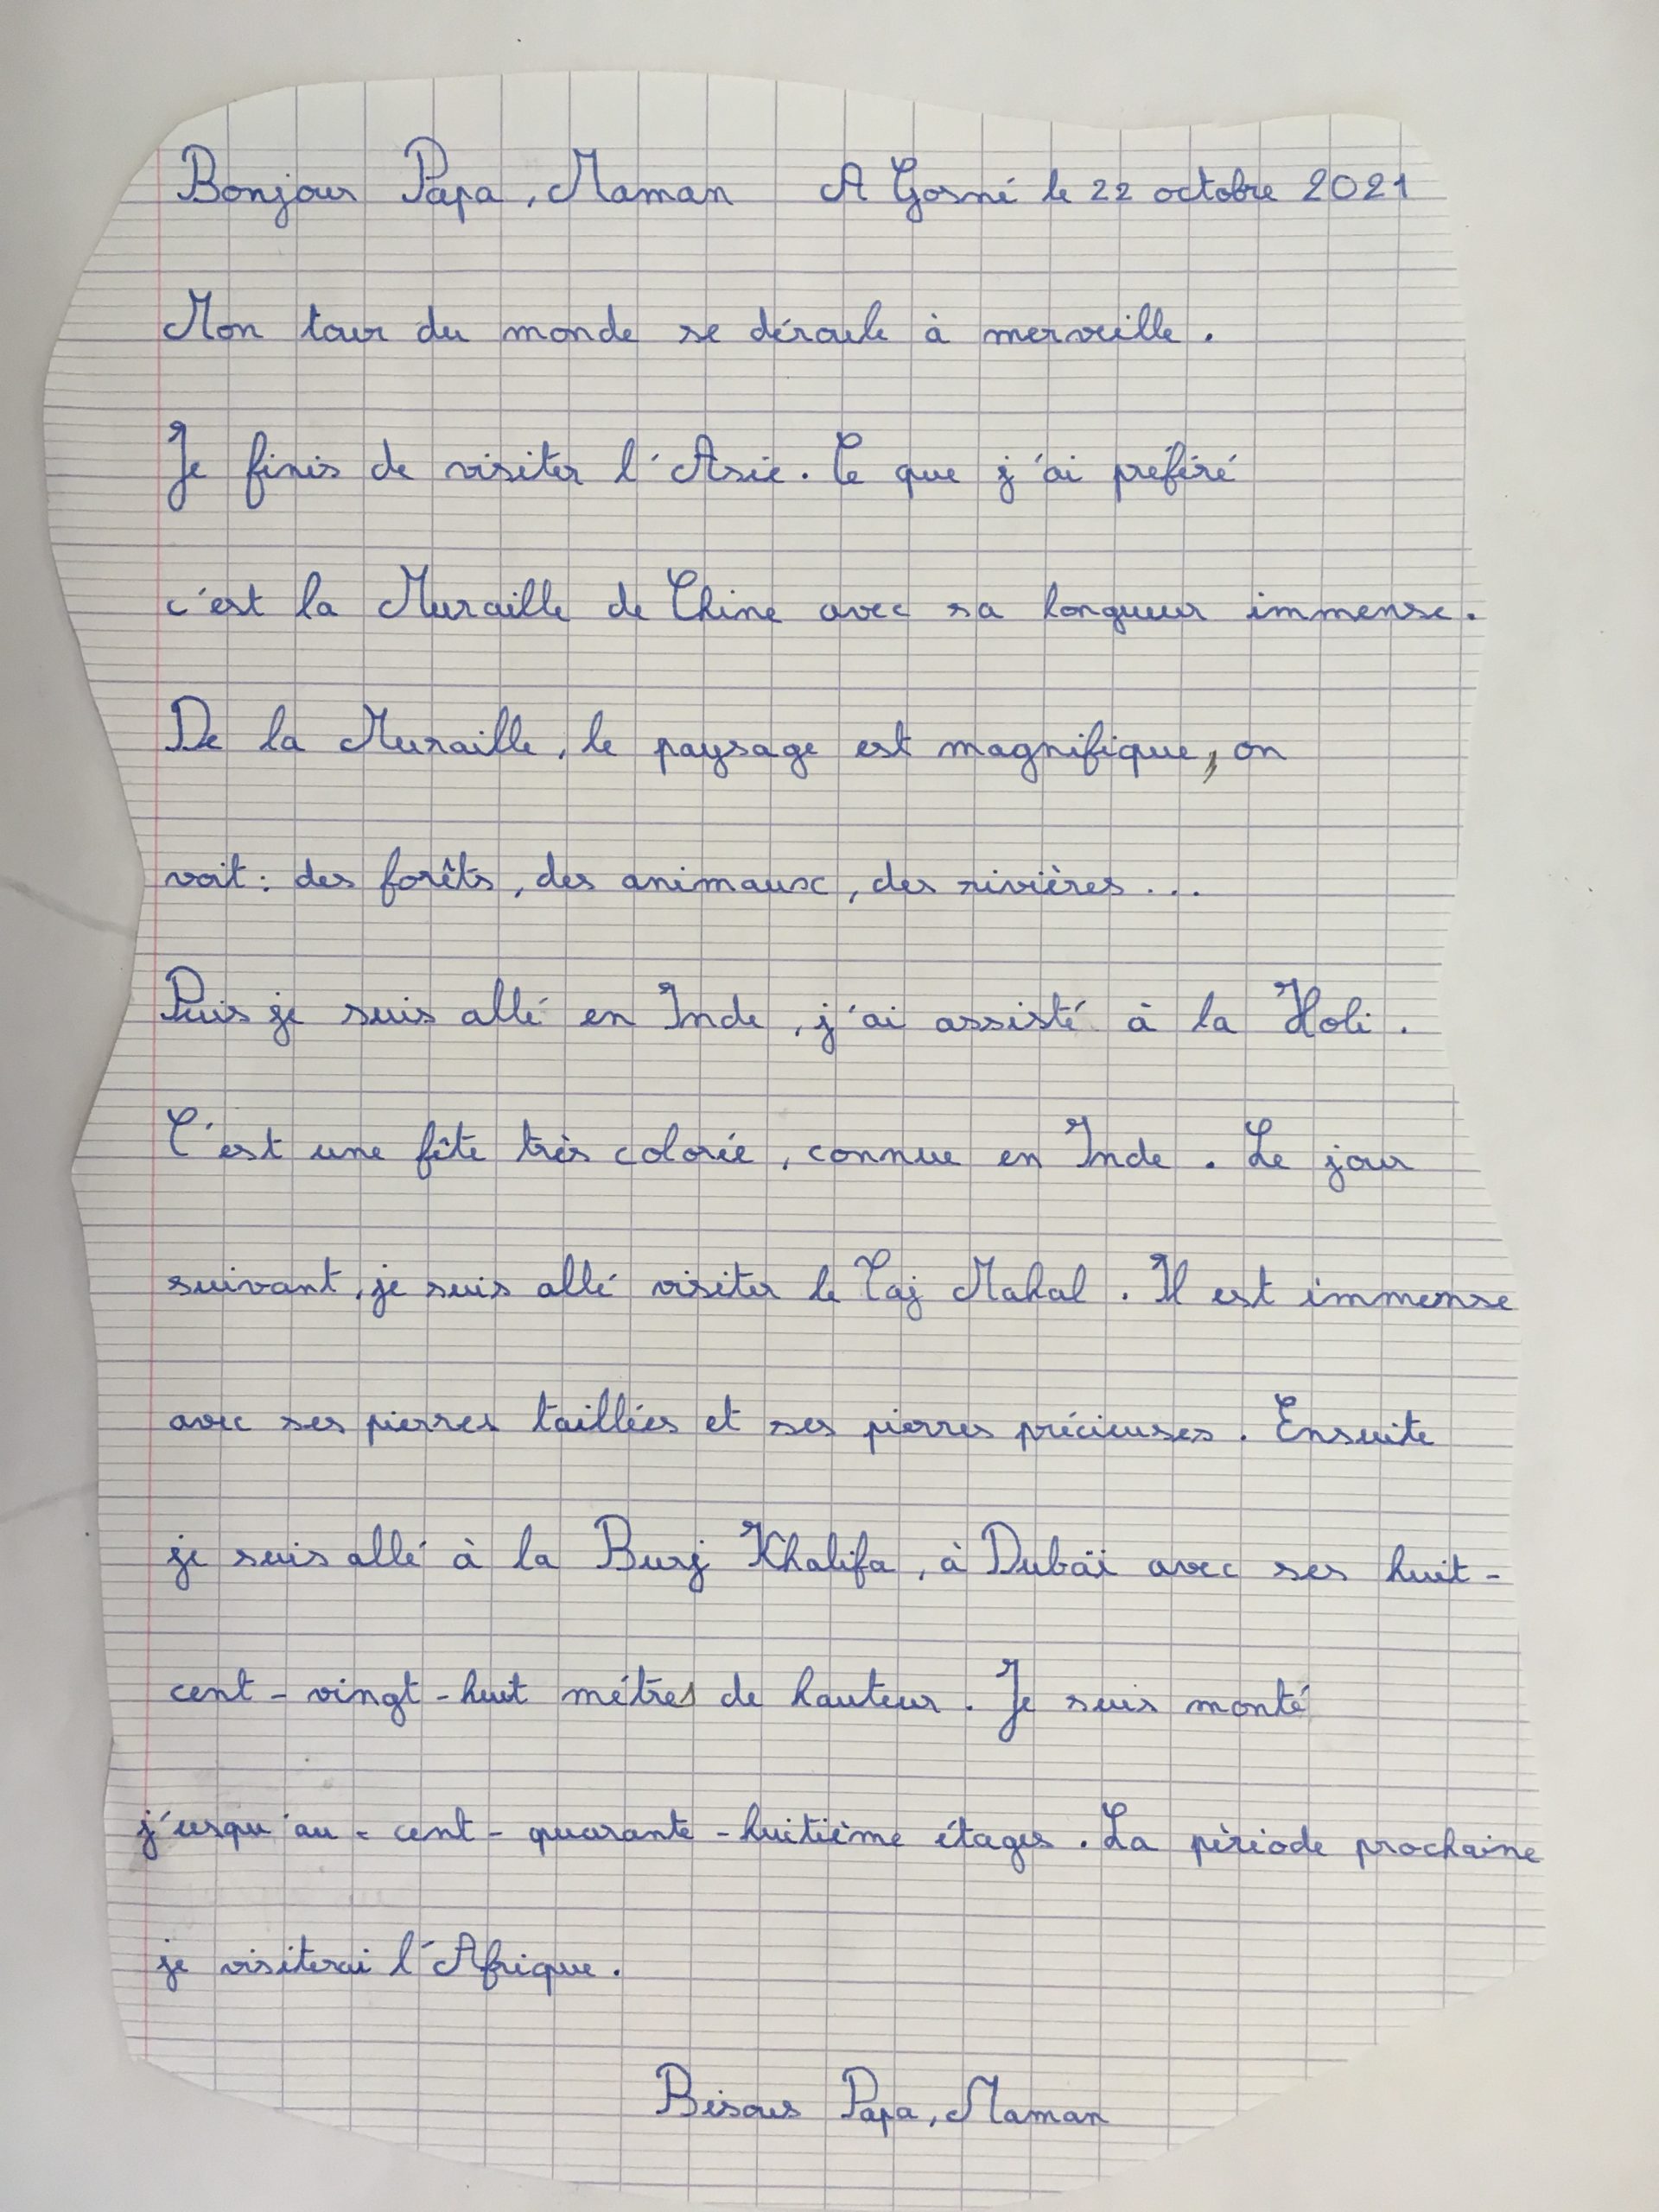 Bonjour Papa, Maman A Gosné le 22 octobre 2021
Mon tour du monde se déroule à merveille.
Je finis de visiter l'Asie. Ce que j'ai préféré
c'est la Muraille de Chine avec sa longueur immense.
De la Muraille, le paysage est magnifique, on
voit : des forêts, des animaux, des rivières...
Puis je suis allé en Inde, j'ai assisté à la Holi.
C'est une fête très colorée, connue en Inde. Le jour
suivant, je suis allé visiter le Taj Mahal. Il est immense
avec ses pierres taillées et ses pierres précieuses. Ensuite
je suis allé à la Burj Khalifa, à Dubaï avec ses huit-
cent-vingt-huit métres de hauteur. Je suis monté
j'usqu'au-cent-quarante-huitième étages. La pèriode prochaine
je visiterai l'Afrique.
Bisous Papa, Maman